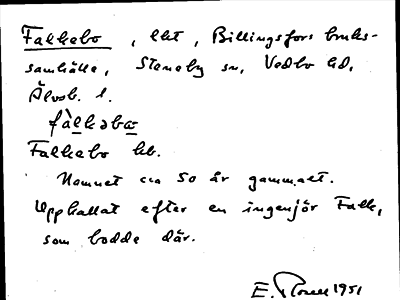 Falkebo, lht, Billingsfors bruks-
samhälle, Steneby sn, Vedbo hd,
Älvsb. l.
fàlkəbω
Falkebo kb.
Namnet ca 50 år gammalt.
Uppkallat efter en ingenjör Falk,
som bodde där.
E. 1951